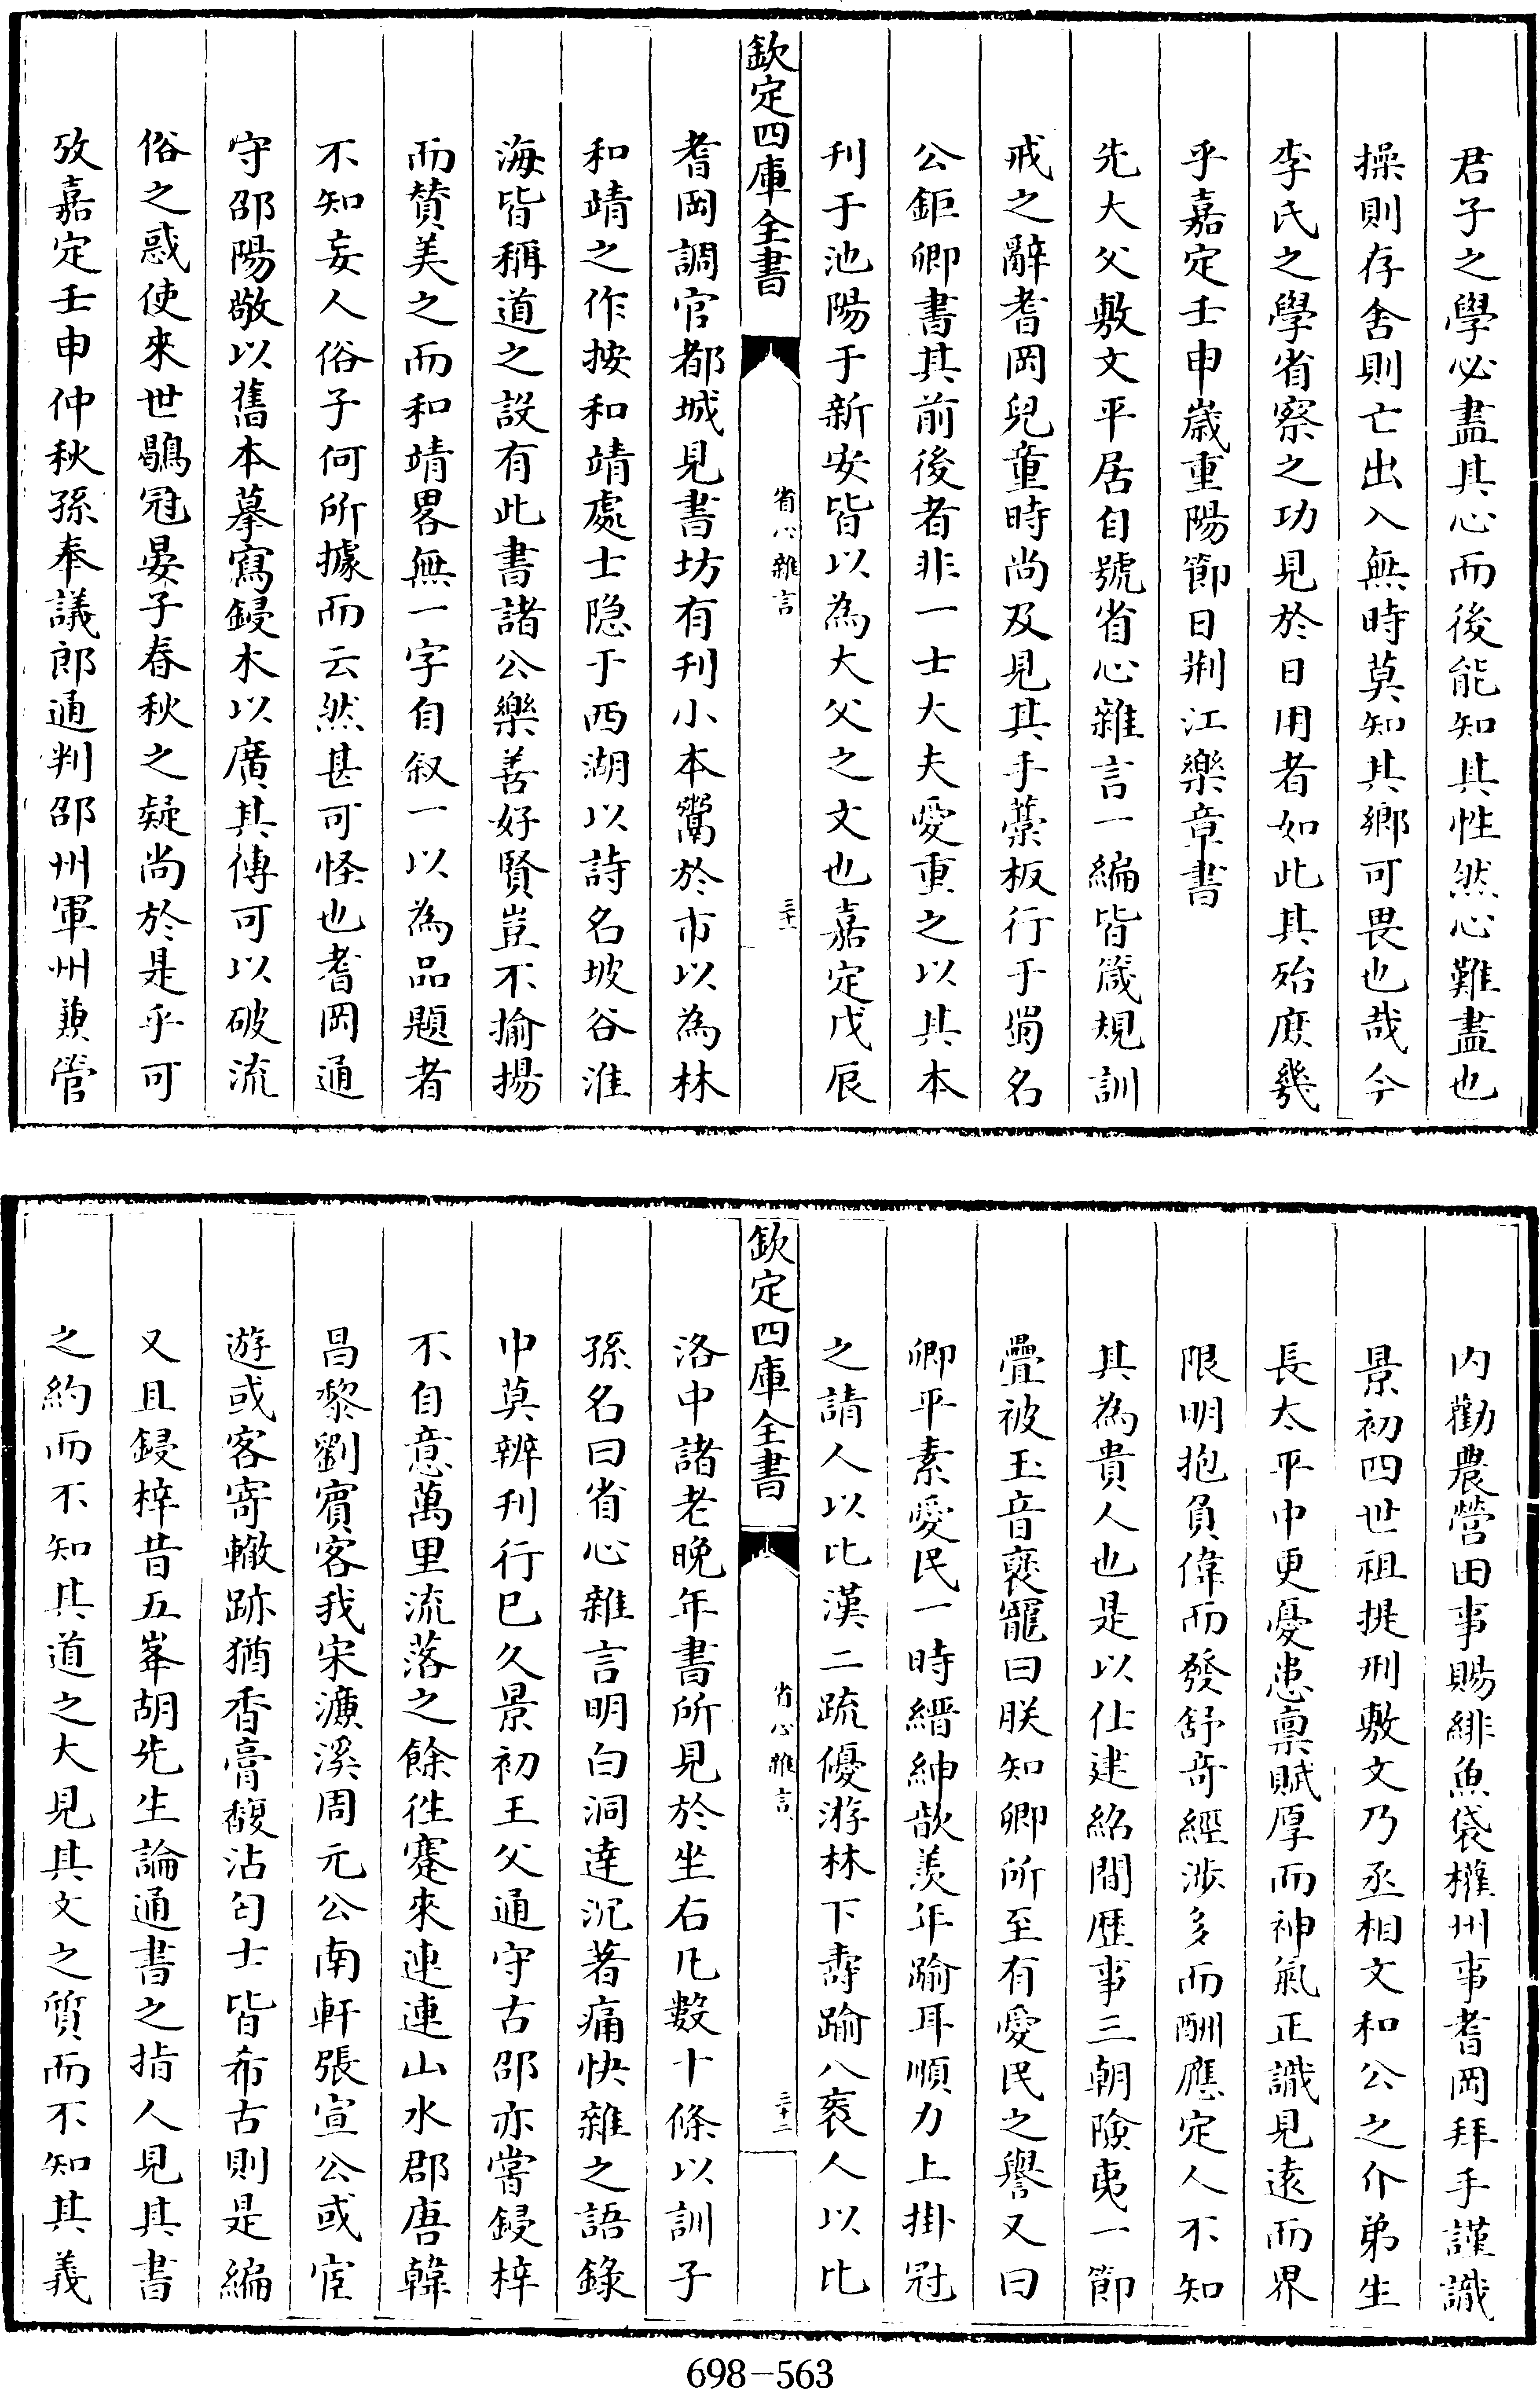 君子之學必盡其心而後能知其性然心難盡也
操則存舍則亡出入無時莫知其鄉可畏也哉今
李氏之學省察之功見於日用者如此其殆庶幾
乎嘉定壬申歲重陽節日荆江樂章書
先大父敷文平居自號省心雜言一編皆箴規訓
戒之辭耆岡兒童時尚及見其手藁板行于蜀名
公鉅卿書其前後者非一士大夫愛重之以其本
刊于池陽于新安皆以為大父之文也嘉定戊辰
欽定四庫全書
省心雜言
三十一
耆岡調官都城見書坊有刊小本鬻於市以為林
和靖之作按和靖處士隐于西湖以詩名坡谷淮
海皆稱道之設有此書諸公樂善好賢豈不揄揚
而賛美之而和靖畧無一字自叙一以為品題者
不知妄人俗子何所據而云然甚可怪也耆岡通
守邵陽敬以舊本摹寫鋟木以廣其傳可以破流
俗之惑使來世鶡冠晏子春秋之疑尚於是乎可
攷嘉定壬申仲秋孫奉議郎通判邵州軍州蕙管
內勸農營田事賜緋魚袋權州事耆岡拜手謹識
景初四世祖提刑敷文乃丞相文和公之介弟生
長太平中更憂患禀賦厚而神氣正識見遠而界
限明抱負偉而發舒奇經涉多而酬應定人不知
其為貴人也是以仕建紹間歷事三朝險夷一節
疊被玉音襃寵曰朕知卿所至有愛民之譽又曰
卿平素愛民一時縉紳歆羨年踰耳順力上掛冠
之請人以比漢二疏優游林下壽踰八袠人以比
欽定四庫全書
省心雜言
三十二
洛中諸老晚年書所見於坐右凡數十條以訓子
孫名曰省心雜言明白洞達沉著痛快雜之語錄
中莫辨刊行已久景初王父通守古邵亦嘗鋟梓
不自意萬里流落之餘徃蹇來連連山水郡唐韓
昌黎劉賓客我宋濂溪周元公南軒張宣公或宦
遊或客寄轍跡猶香膏馥沾匄士皆希古則是編
又且鋟梓昔五峯胡先生論通書之指人見其書
之約而不知其道之大見其文之質而不知其義
698-563